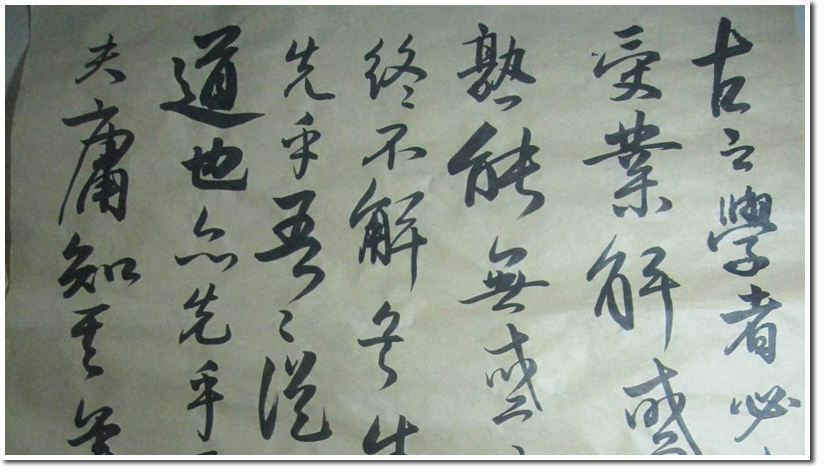 古之學者必
受業解惑
熟能無惑
終不解矣生
先乎吾〻從
道也亦先乎
夫庸知其年